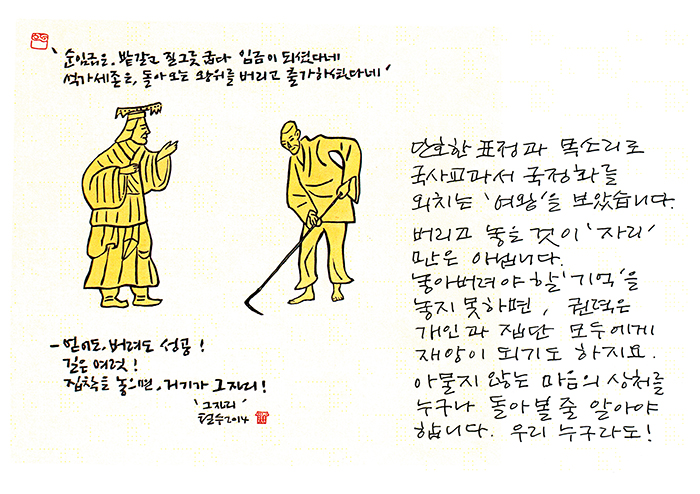 '순임금은, 밭갈고 질그릇 굽다 임금이 되셨다네
석가세존은, 돌아오는 왕위를 버리고 출가하셨다네'
- 얻어도, 버려도 성공!
길은 여럿!
집착을 놓으면, 거기가 그자리!
'그자리'
철수2014
단호한 표정과 목소리로
국사교과서 국정화를
외치는 '여왕'을 보았습니다.
버리고 놓을 것이 '자리'
만은 아닙니다.
놓아버려야 할 '기억'을
놓지 못하면, 권력은
개인과 집단 모두에게
재앙이 되기도 하지요.
아물지 않는 마음의 상처를
누구나 돌아볼 줄 알아야
합니다. 우리 누구라도!